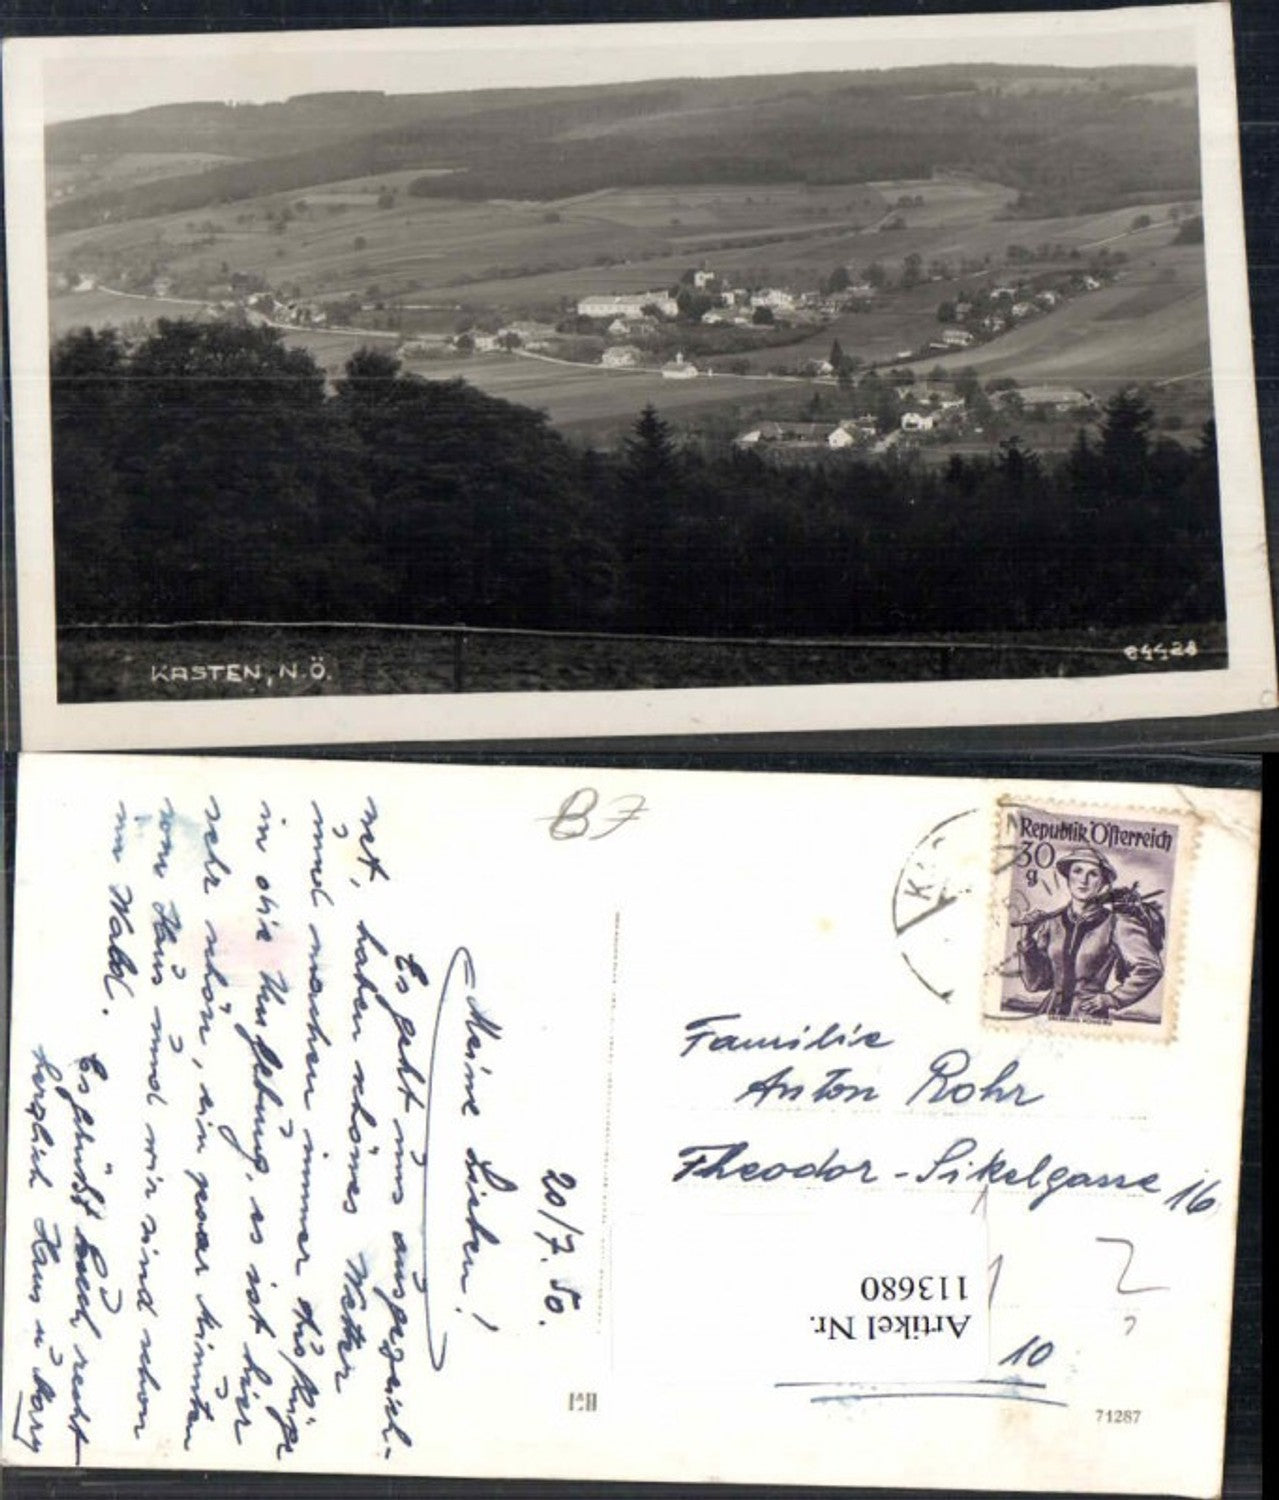 KASTEN, N.Ö.
B7
Republik Österreich
30
g
20/7. 50.
Meine Lieben!
Es geht uns ausgezeich-
net, haben schönes Wetter
und machen immer Ausflüge
in die Umgebung, es ist hier
sehr schön, ein paar Minuten
vom Haus und wir sind schon
im Wald.
Es grüßt Euch recht
herzlich Hans u
Familie
Anton Rohr
Theodor-Sikelgasse 16
Artikel Nr.
113680
10
71287